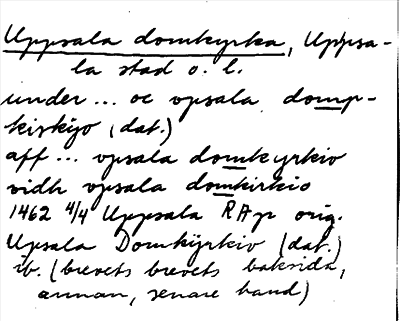 Uppsala domkyrka, Uppsa-
la stad o. l.
under ... oc vpsala domp-
kirkijo (dat.)
aff ... vpsala domkyrkio
vidh vpsala domkirkio
1462 4/4 Uppsala RAp orig.
Upsala Domkijrkio (dat.)
ib. (brevets brevets baksida,
annan, senare hand)